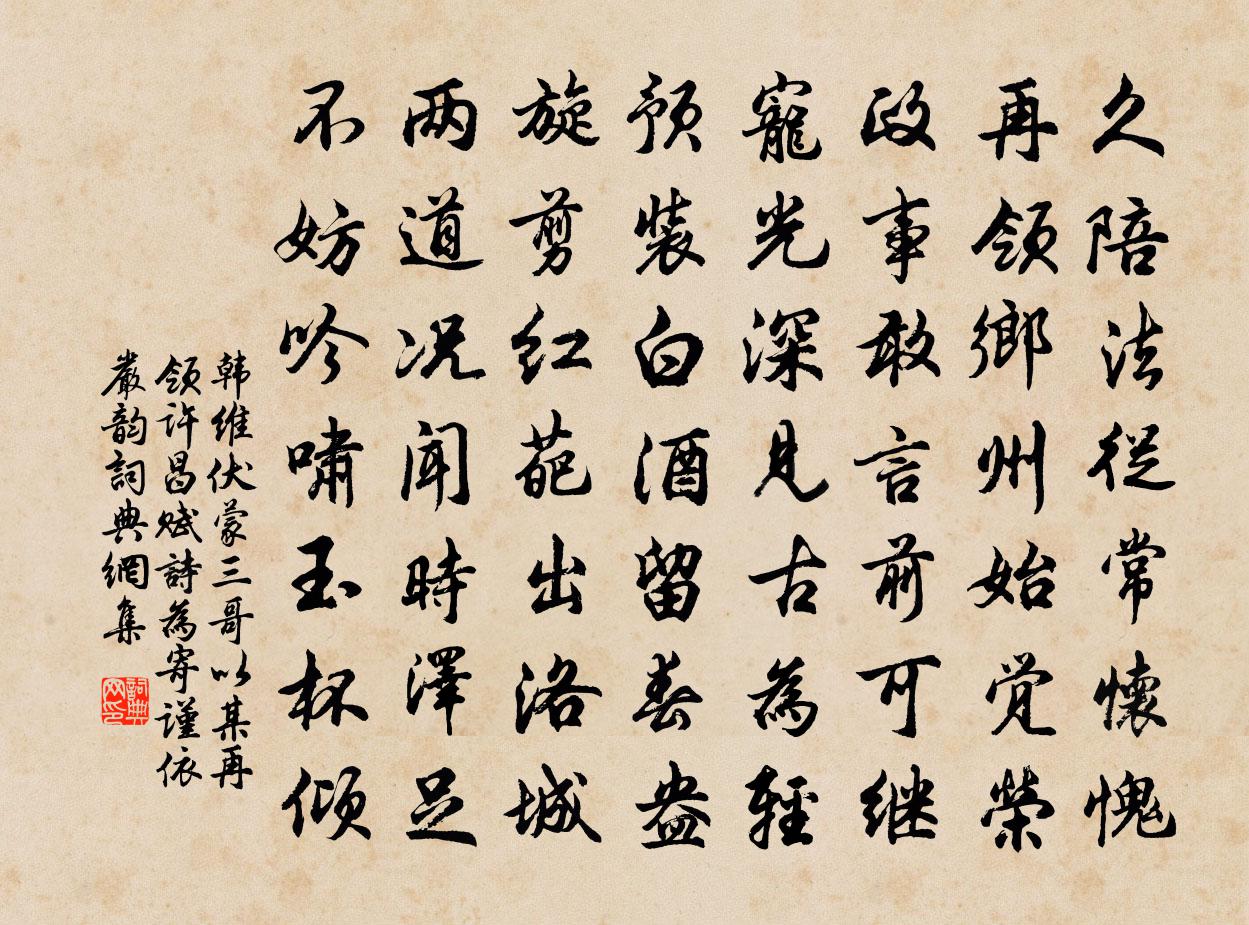 久陪法從常懷愧
再領鄉州始觉榮
政事敢言前可继
寵光深見古為輕
預裝白酒留春盎
旋剪红葩出洛城
两道况闻時澤足
不妨吟嘯玉杯傾
韩維伏蒙三哥以某再
領许昌赋詩為寄謹依
嚴韵詞典網集
詞典网印